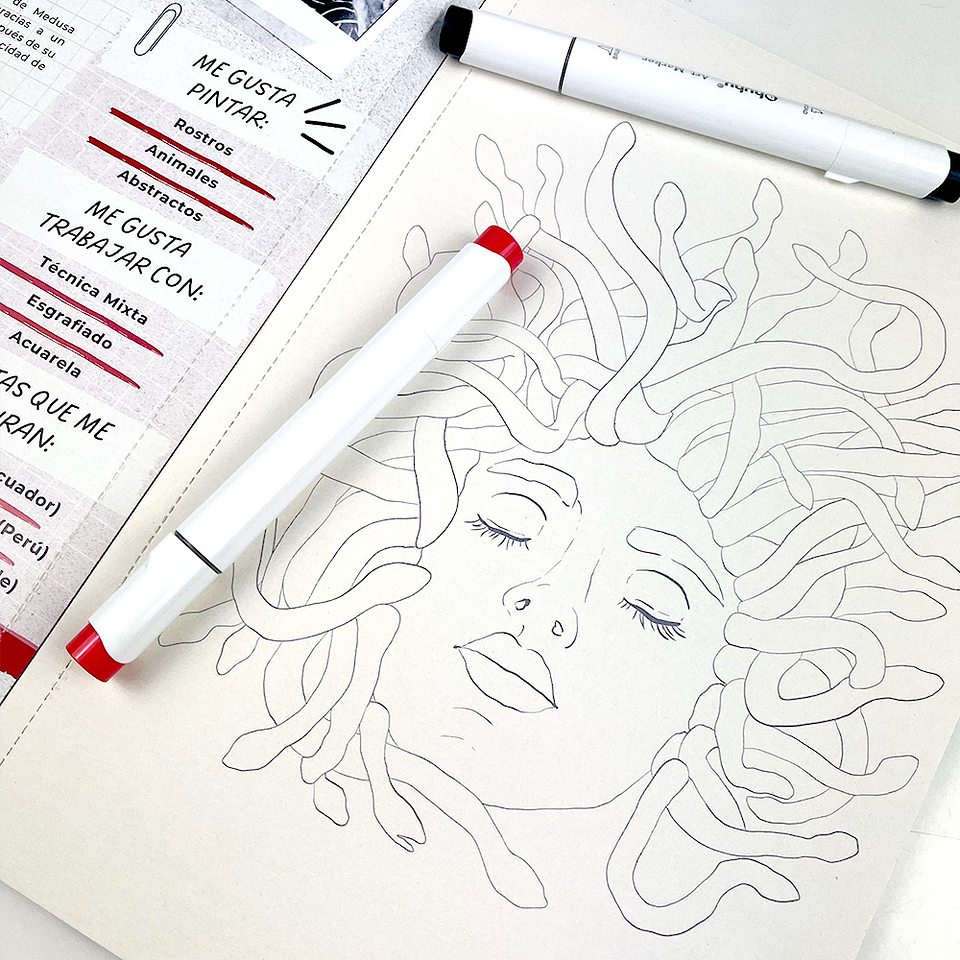 de Medusa
racias a un
pués de su
cidad de
ME GUSTA
PINTAR:
Rostros
Animales
Abstractos
ME GUSTA
TRABAJAR CON:
Técnica Mixta
Esgrafiado
Acuarela
TAS QUE ME
IRAN:
cuador)
(Perú)
le)
Ohuhu® Art Marker